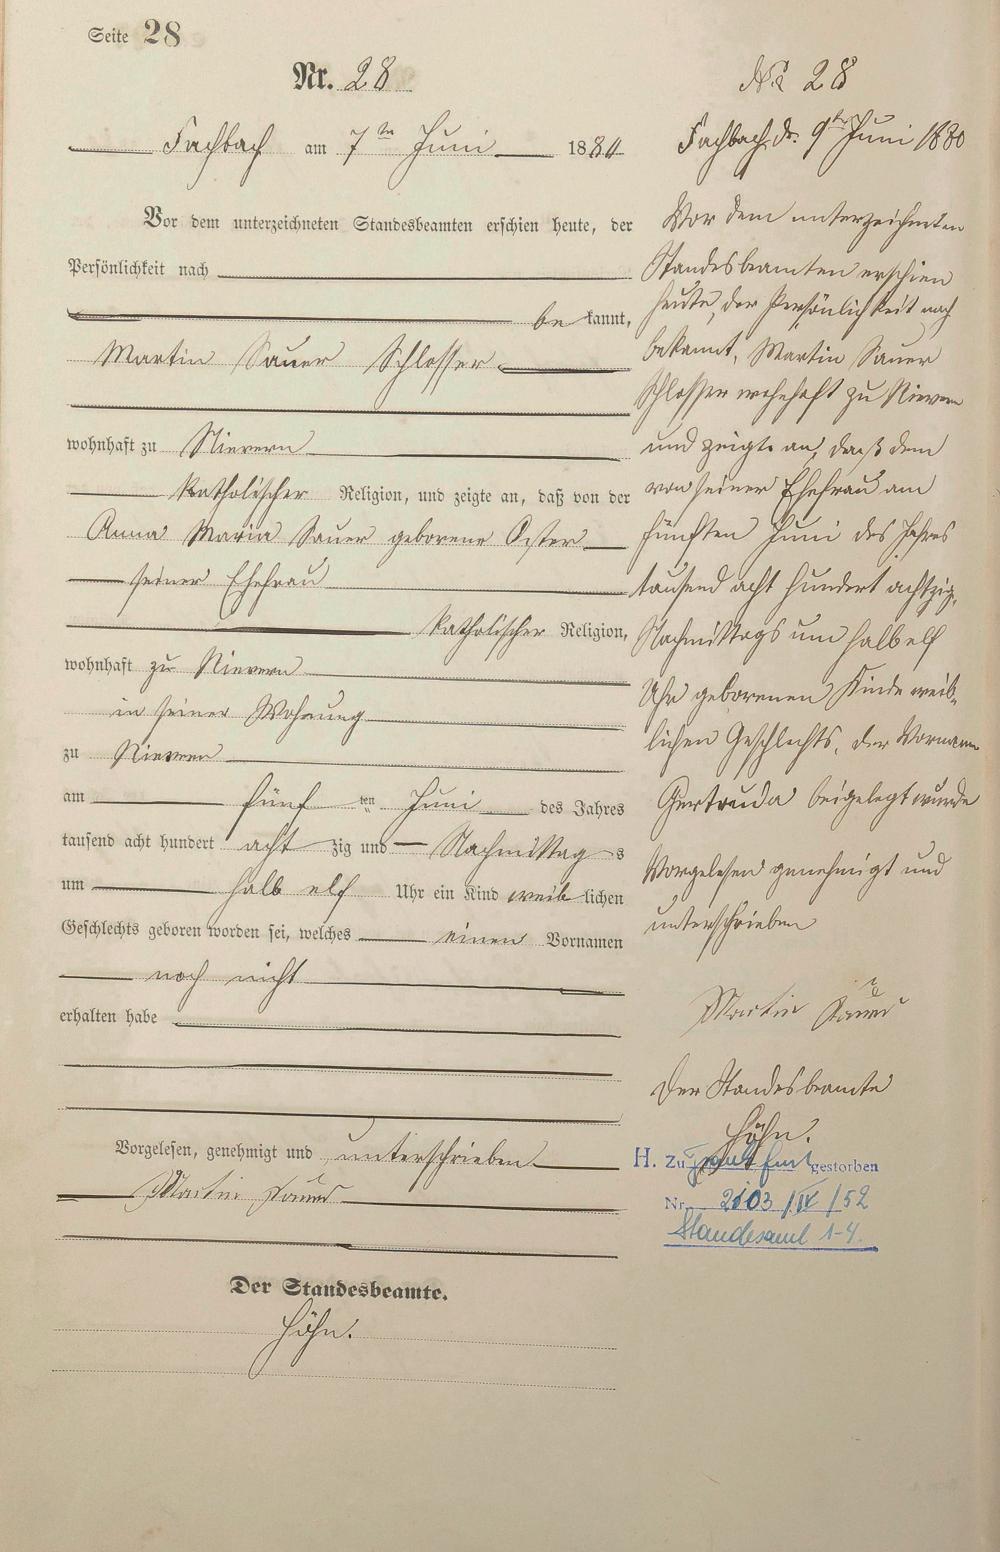 Seite 28
Nr. 28
Fachbach am 7ten Juni 1880
Vor dem unterzeichneten Standesbeamten erschien heute, der
Persönlichkeit nach
be kannt,
Martin Sauer Schlosser
wohnhaft zu Nievern
katholischer Religion, und zeigte an, daß von der
Anna Maria Sauer geborene Oster
seiner Ehefrau
katholischer Religion,
wohnhaft zu Nievern
in seiner Wohnung
zu Nievern
am fünf ten Juni des Jahres
tausend acht hundert acht zig und Nachmittag s
um halb elf Uhr ein Kind weib lichen
Geschlechts geboren worden sei, welches einen Vornamen
noch nicht
erhalten habe
Vorgelesen, genehmigt und unterschrieben
Martin Sauer
Der Standesbeamte.
Höhn.
No 28
Fachbach, d. 9ten Juni 1880
Vor dem unterzeichneten
Standesbeamten erschien
heute, der Persönlichkeit nach
bekannt, Martin Sauer
Schlosser wohnhaft zu Nievern
und zeigte an, daß dem
von seiner Ehefrau am
fünften Juni des Jahres
tausend acht hundert achtzig,
Nachmittags um halb elf
Uhr geborenen Kinde weib-
lichen Geschlechts, der Vorname
Gertruda beigelegt wurde
Vorgelesen genehmigt und
unterschrieben
Martin Sauer
Der Standesbeamte
Höhn.
H. Zu gestorben
Nr. 2103/IV/52
Standesamt 1-4.